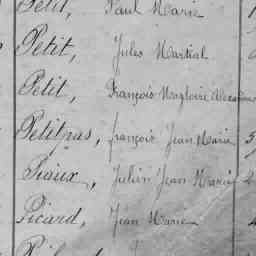 Petit, Paul Marie
Petit, Jules Martial
Petit, François Magloire
Petitpas, françois Jean Marie
Piaux, Julien Jean Marie
Picard, Jean Marie